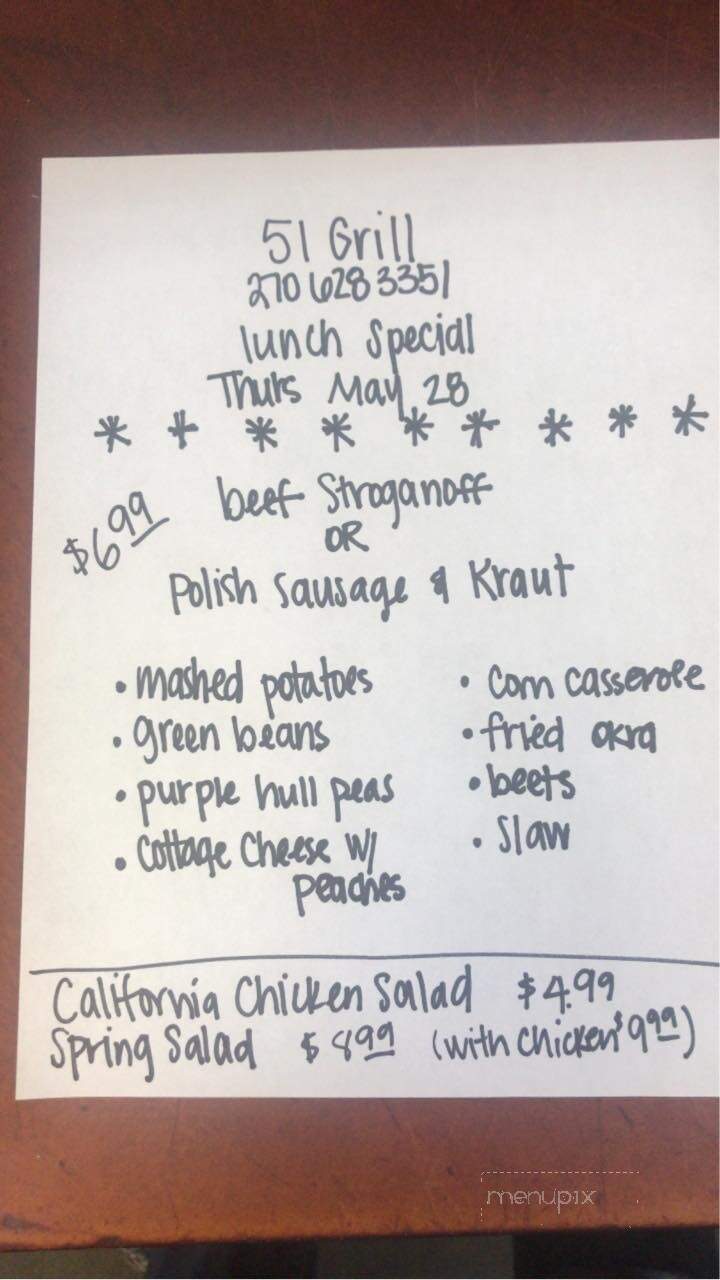 51 Grill
270 628 3351
lunch Special
Thurs May 28
* * * * * * * * *
$6.99 beef Stroganoff
OR
Polish Sausage & Kraut
• mashed potatoes
• green beans
• purple hull peas
• Cottage Cheese w/
peaches
• Corn casserole
• fried okra
• beets
• Slaw
California Chicken Salad $4.99
Spring Salad $8.99 (with chicken $9.99)
menupix